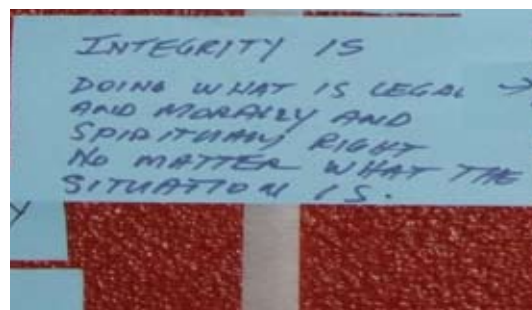 INTEGRITY IS
DOING WHAT IS LEGAL →
AND MORALLY AND
SPIRITUALLY RIGHT
NO MATTER WHAT THE
SITUATION IS.
y